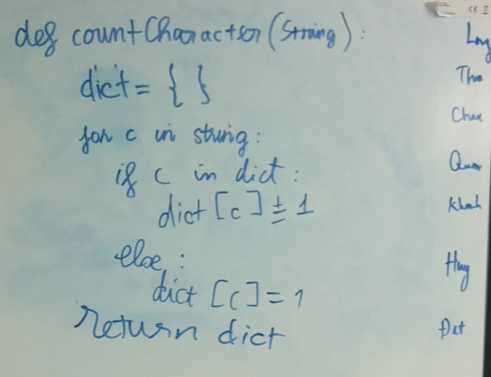 def countCharacter(String):
dict = { }
for c in string:
if c in dict:
dict [c] += 1
else:
dict [c] = 1
return dict
Long
Chau
Khanh
Huy
Đat